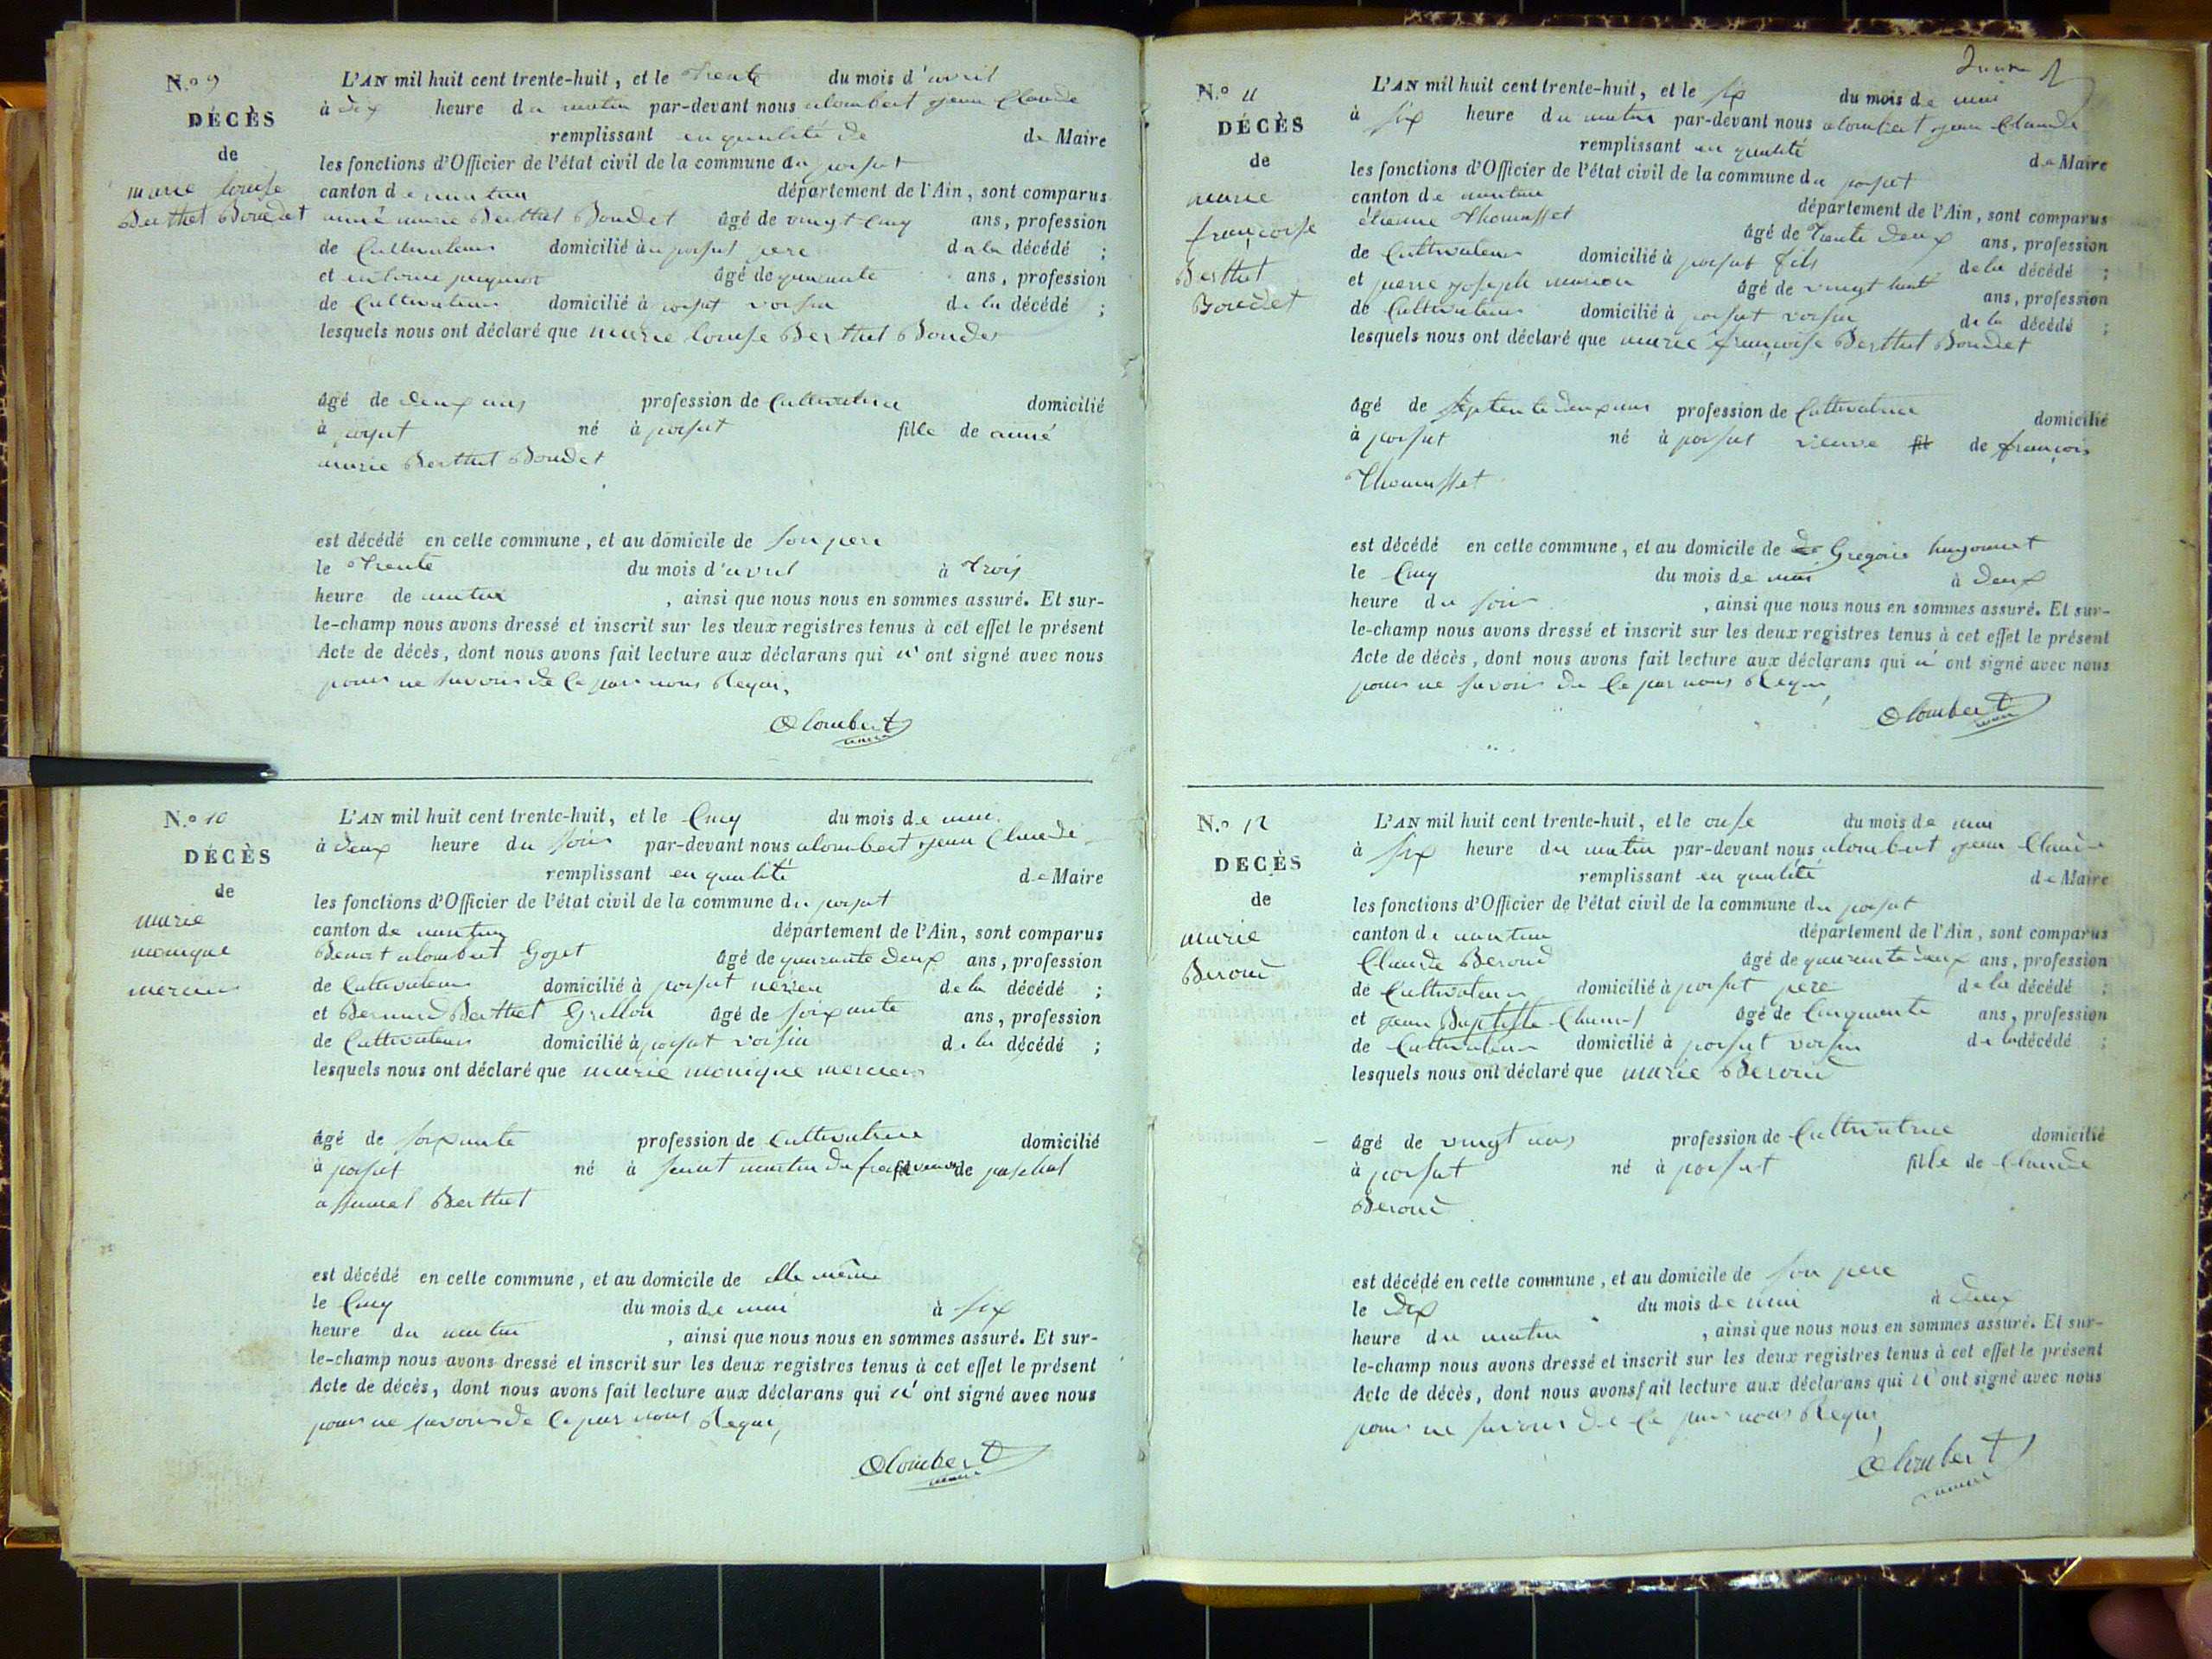 N.o 9
DÉCÈS
de
marie louise
Berthet Bondet
L'AN mil huit cent trente-huit, et le trente du mois d'avril
à dix heure du matin par-devant nous alombert jean Claude
remplissant en qualité de de Maire
les fonctions d'Officier de l'état civil de la commune du poisat
canton de nantua département de l'Ain, sont comparus
aimé marie Berthet Bondet âgé de vingt cinq ans, profession
de Cultivateur domicilié au poisat pere de la décédé ;
et antoine âgé de quarante ans, profession
de Cultivateur domicilié à poisat voisin de la décédé ;
lesquels nous ont déclaré que marie louise Berthet Bondet
âgé de deux ans profession de Cultivatrice domicilié
à poisat né à poisat fille de aimé
marie Berthet Bondet
est décédé en cette commune, et au domicile de son pere
le trente du mois d'avril à trois
heure de matin , ainsi que nous nous en sommes assuré. Et sur-
le-champ nous avons dressé et inscrit sur les deux registres tenus à cet effet le présent
Acte de décès, dont nous avons fait lecture aux déclarans qui n' ont signé avec nous
pour ne savoir de ce par nous Requi,
Alombert
maire
N.o 10
DÉCÈS
de
marie
monique
mercier
L'AN mil huit cent trente-huit, et le Cinq du mois de mai
à deux heure du soir par-devant nous alombert jean Claude
remplissant en qualité de Maire
les fonctions d'Officier de l'état civil de la commune du poisat
canton de nantua département de l'Ain, sont comparus
Benoit alombert Goget âgé de quarante deux ans, profession
de Cultivateur domicilié à poisat neveu de la décédé ;
et Bernard Berthet Grellon âgé de soixante ans, profession
de Cultivateur domicilié à poisat voisin de la décédé ;
lesquels nous ont déclaré que marie monique mercier
âgé de soixante profession de Cultivatrice domicilié
à poisat né à saint martin du frene veuve de paschal
assumel Berthet
est décédé en cette commune, et au domicile de elle même
le Cinq du mois de mai à six
heure du matin , ainsi que nous nous en sommes assuré. Et sur-
le-champ nous avons dressé et inscrit sur les deux registres tenus à cet effet le présent
Acte de décès, dont nous avons fait lecture aux déclarans qui n' ont signé avec nous
pour ne savoir de ce par nous Requi,
Alombert
maire
N.o 11
DÉCÈS
de
marie
françoise
Berthet
Bondet
L'AN mil huit cent trente-huit, et le six du mois de mai
à six heure du matin par-devant nous alombert jean Claude
remplissant en qualité de Maire
les fonctions d'Officier de l'état civil de la commune du poisat
canton de nantua département de l'Ain, sont comparus
étienne Thomasset âgé de trente deux ans, profession
de Cultivateur domicilié à poisat fils de la décédé ;
et pierre joseph marion âgé de vingt huit ans, profession
de Cultivateur domicilié à poisat voisin de la décédé ;
lesquels nous ont déclaré que marie françoise Berthet Bondet
âgé de septente deux ans profession de Cultivatrice domicilié
à poisat né à poisat veuve fil de françois
Thomasset
est décédé en cette commune, et au domicile de de Gregoire hugonnet
le Cinq du mois de mai à deux
heure du soir , ainsi que nous nous en sommes assuré. Et sur-
le-champ nous avons dressé et inscrit sur les deux registres tenus à cet effet le présent
Acte de décès, dont nous avons fait lecture aux déclarans qui n' ont signé avec nous
pour ne savoir de ce par nous Requi,
Alombert
maire
N.o 12
DECÈS
de
marie
Beroud
L'AN mil huit cent trente-huit, et le onse du mois de mai
à six heure du matin par-devant nous alombert jean Claude
remplissant en qualité de Maire
les fonctions d'Officier de l'état civil de la commune du poisat
canton de nantua département de l'Ain, sont comparus
Claude Beroud âgé de quarante deux ans, profession
de Cultivateur domicilié à poisat pere de la décédé ;
et jean Baptiste âgé de Cinquante ans, profession
de Cultivateur domicilié à poisat voisin de la décédé ;
lesquels nous ont déclaré que marie Beroud
âgé de vingt ans profession de Cultivatrice domicilié
à poisat né à poisat fille de Claude
Beroud
est décédé en cette commune, et au domicile de son pere
le dix du mois de mai à deux
heure du matin , ainsi que nous nous en sommes assuré. Et sur-
le-champ nous avons dressé et inscrit sur les deux registres tenus à cet effet le présent
Acte de décès, dont nous avons fait lecture aux déclarans qui n' ont signé avec nous
pour ne savoir de ce par nous Requi,
Alombert
maire